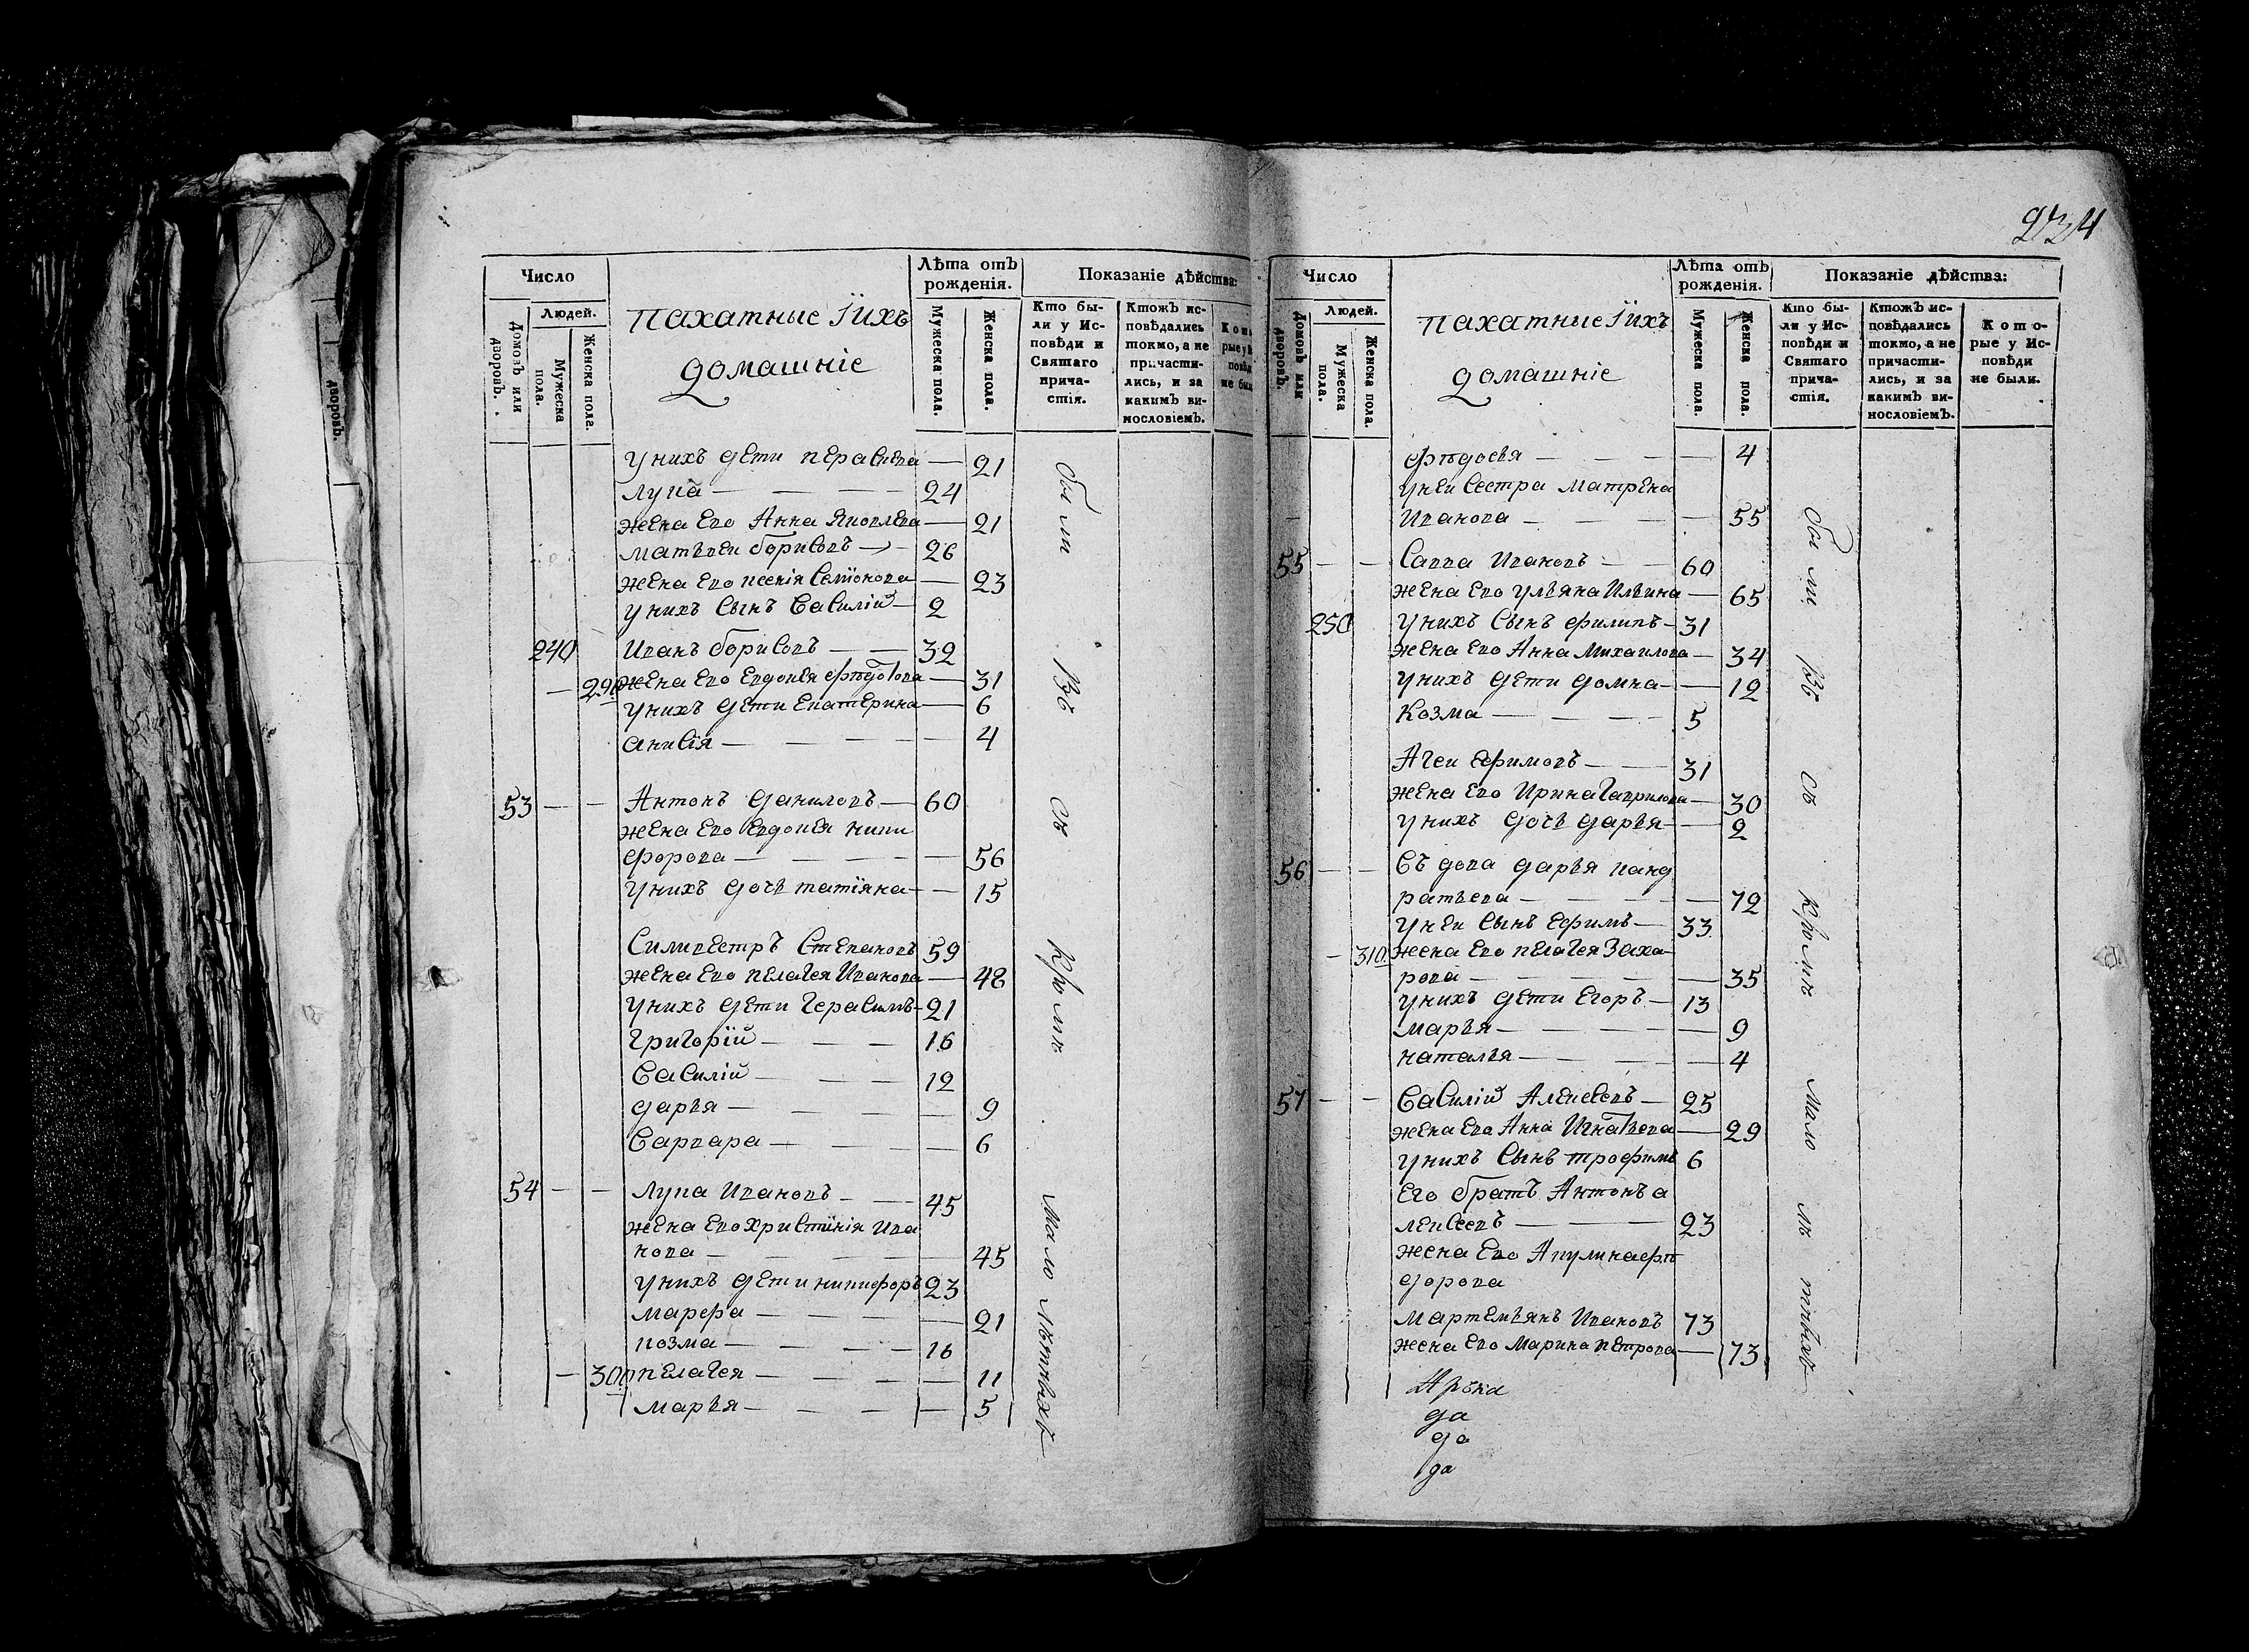 274
Число
Людей.
Домовъ или дворовъ.
Мужеска пола.
Женска пола.
пахатные Їихъ
домашніе
Лѣта отъ рожденія.
Мужеска пола.
Женска пола.
Показаніе дѣйства:
Кто были у Исповѣди и Святаго причастія.
Ктожъ исповѣдались токмо, а не причастились, и за какимъ винословіемъ.
унихъ дети — 21
лупа — 24
жена Ево Анна Яковлева — 21
матвеи борисовъ — 26
жена Ево ксенія Семїонова — 23
унихъ Сынъ Василій — 2
240 Иванъ борисовъ — 32
жена Ево Евдокея федотова — 31
унихъ дети Екатерина — 6
анисїя — 4
53 — — Антонъ даниловъ — 60
жена Ево Евдокея ники
форова — 56
унихъ дочь татїяна — 15
Силивестръ Степановъ 59
жена Ево пелагея Иванова — 48
унихъ дети Герасимъ — 21
григорїй — 16
Василїй — 12
дарья — 9
Варвара — 6
54 — — Лупа Ивановъ — 45
жена Ево христинїя Ива
нова — 45
унихъ дети никифоръ 23
марфа — 21
козма — 16
— 300 пелагея — 11
марья — 5
были Въ съ Кромѣ мало лѣтныхъ
Число
Людей.
Домовъ или дворовъ.
Мужеска пола.
Женска пола.
пахатные Їихъ
домашніе
Лѣта отъ рожденія.
Мужеска пола.
Женска пола.
Показаніе дѣйства:
Кто были у Исповѣди и Святаго причастія.
Ктожъ исповѣдались токмо, а не причастились, и за какимъ винословіемъ.
Которые у Исповѣди не были.
федосья — 4
унеи Сестра Матрена
Иванова — 55
55 — — Савва Ивановъ — 60
жена Ево ульяна Ильина — 65
250 унихъ Сынъ филипъ — 31
жена Ево Анна Михаилова — 34
унихъ дети домна — 12
Козма — 5
Агеи ефимовъ — 31
жена Ево Ирина Гаврилова — 30
унихъ дочь дарья — 2
56 — — Въдова дарья панд
ратьева — 72
унеи Сынъ ефимъ — 33
— 310 жена Ево пелагея Заха
рова — 35
унихъ дети Егоръ — 13
марья — 9
наталья — 4
57 — — Василїй Алексеевъ — 25
жена Ево Анна Игнатьева — 29
унихъ Сынъ трофимъ 6
Его братъ Антонъ а
лексеевъ — 23
жена Ево Акулина фе
дорова
мартемьянъ Ивановъ 73
жена Ево Марина петрова — 73
да
да
да
были Въ съ Кромѣ мало лѣ тныхъ